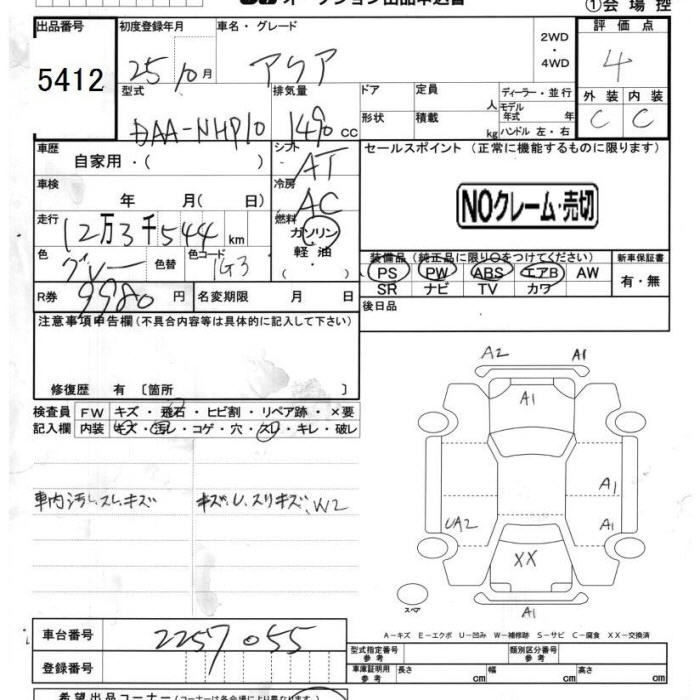 オークション出品申込書 ①会場控
出品番号 初度登録年月 車名・グレード 2WD ・ 4WD 評価点
5412 25 10月 アクア 4
型式 排気量 ドア 定員 人 ディーラー・並行 外装 内装
DAA-NHP10 1490 cc 形状 積載 kg モデル年式 年 ハンドル 左・右 C C
車歴 シフト セールスポイント (正常に機能するものに限ります)
自家用・( ) AT
車検 冷房
年 月( 日) AC NOクレーム・売切
走行 燃料
12万3千544 km ガソリン
色 色替 色コード 軽油 装備品 (純正品に限り○をつけてください) 新車保証書
グレー 1G3 ( ・ ) PS PW ABS エアB AW 有・無
SR ナビ TV カワ
R券 9980 円 名変期限 月 日 後日品
注意事項申告欄(不具合内容等は具体的に記入して下さい)
修復歴 有 〔箇所 〕
検査員 FW キズ・飛石・ヒビ割・リペア跡・×要
記入欄 内装 キズ・汚レ・コゲ・穴・スレ・キレ・破レ
車内汚レ.スレ.キズ キズ.U.スリキズ.W2
A2 A1
A1
A1
UA2 A1
XX
スペア A1
A-キズ E-エクボ U-凹み W-補修跡 S-サビ C-腐食 XX-交換済
車台番号 2257055 型式指定番号 参考 類別区分番号 参考
登録番号 車庫証明用 参考 長さ cm 幅 cm 高さ cm
希望出品コーナー (コーナーは各会場により異なります)